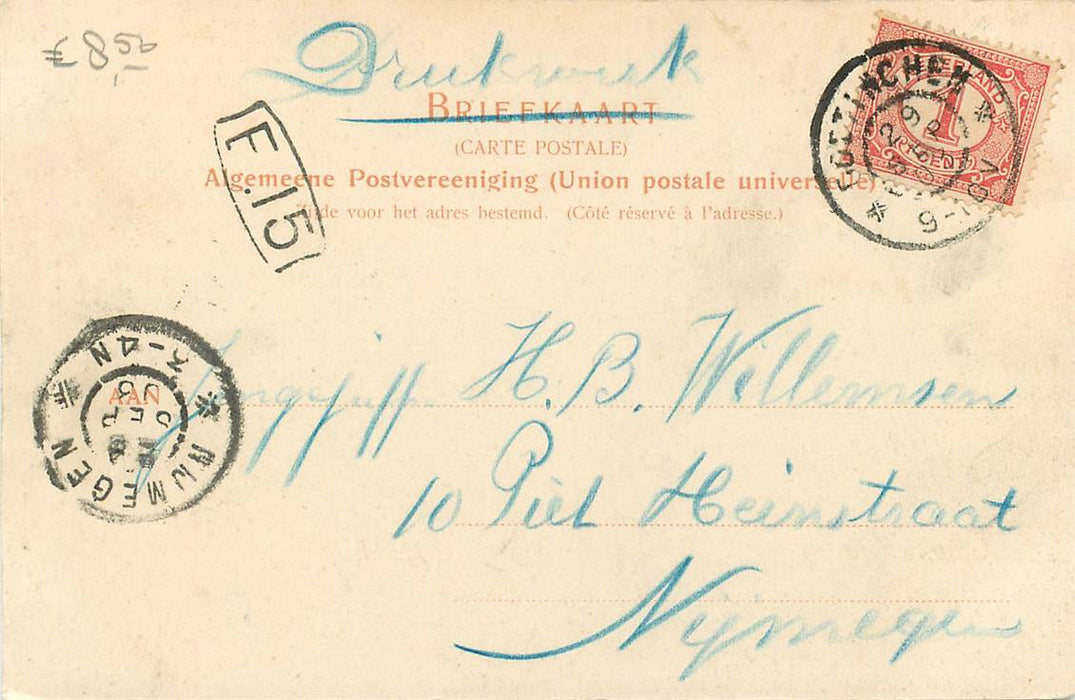 £ 8,50
Drukwerk
BRIEFKAART
(CARTE POSTALE)
Algemeene Postvereeniging (Union postale universelle)
Zijde voor het adres bestemd. (Côté réservé à l'adresse.)
F.15
1
CENT
9-10V
NIJMEGEN
3-4N
AAN
H. B. Willemsen
10 Piet Heinstraat
Nijmegen